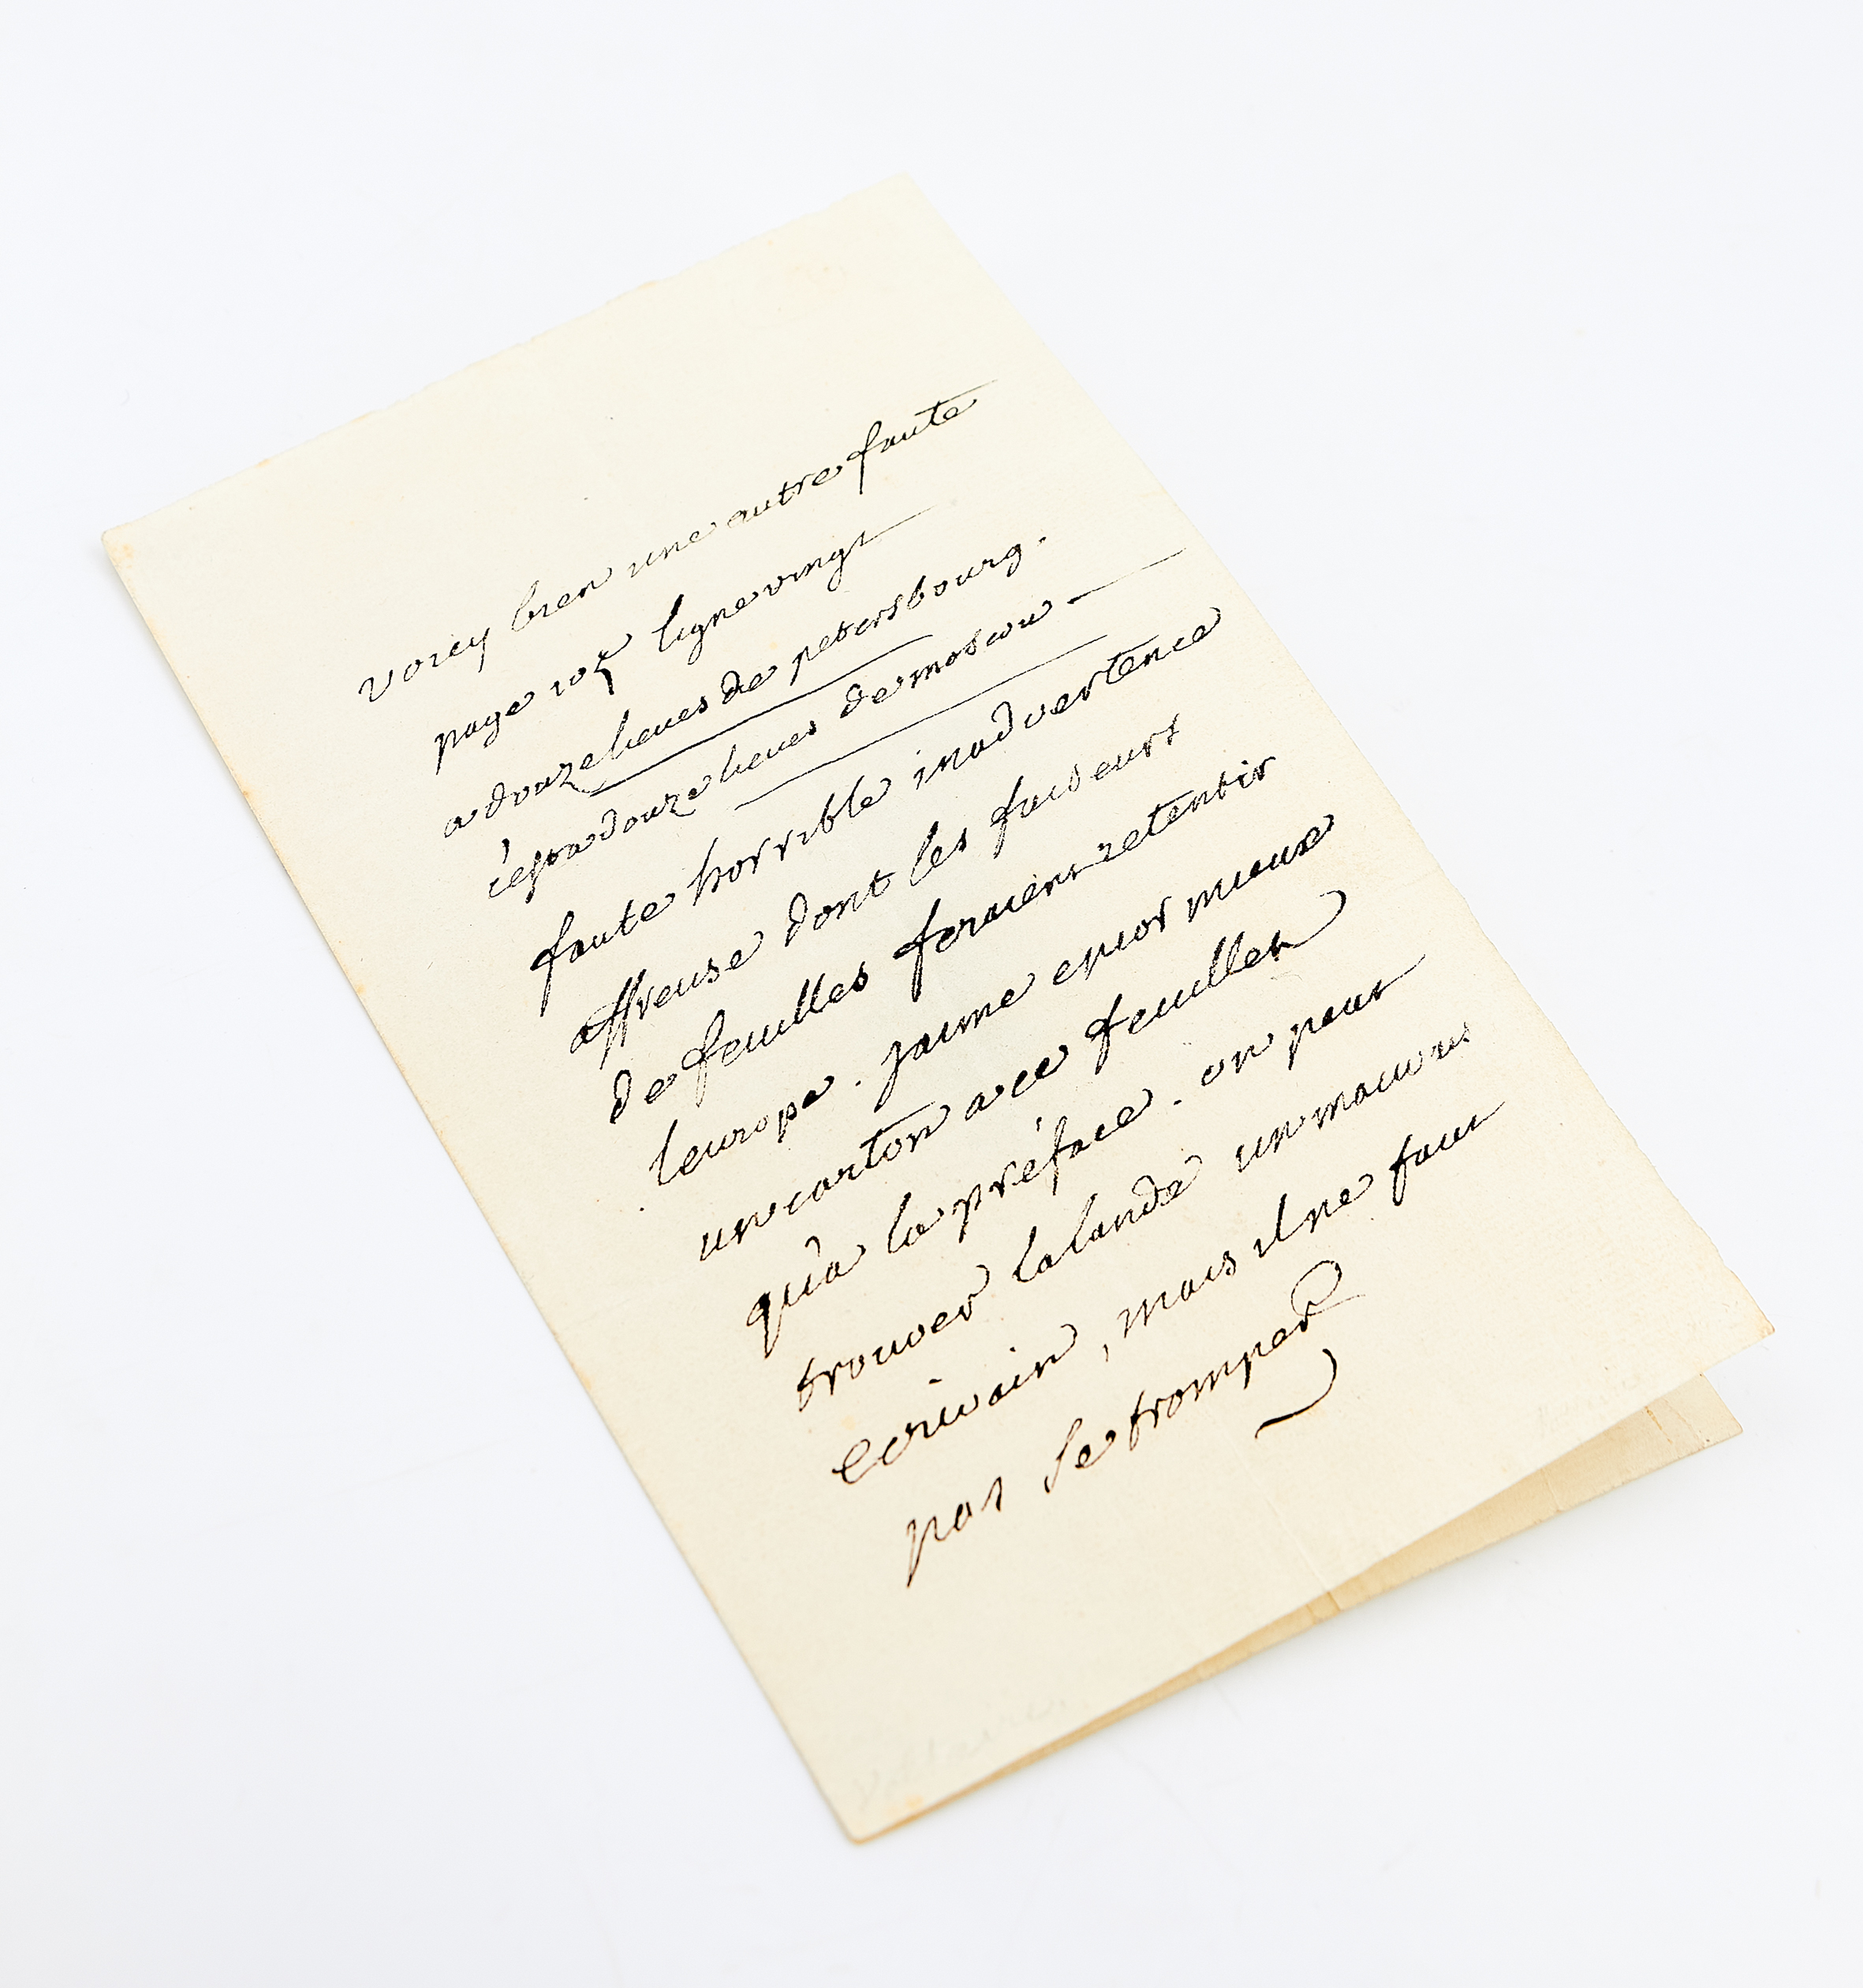 voicy bien une autre faute
page 105 ligne vingt
a douze lieues de petersbourg.
c'est a douze lieues de moscou —
faute horrible inadvertence
affreuse dont les faiseurs
de feuilles feraient retentir
leurope. jaime encor mieux
un carton a ce feuillet
qu'a la préface. on peut
trouver lalande un mauvais
ecrivain, mais il ne faut
pas se tromper
Voltaire